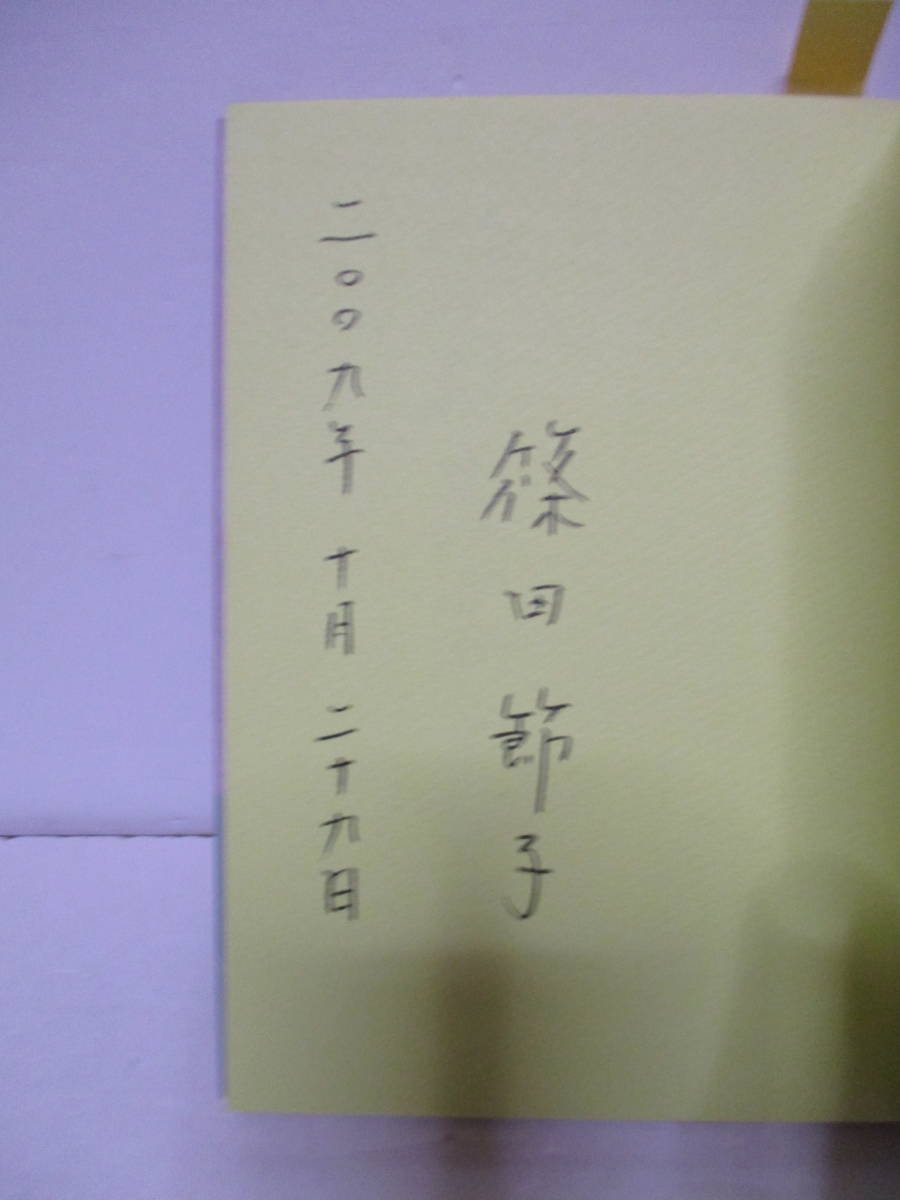 篠田節子
二〇〇九年 十月 二十九日